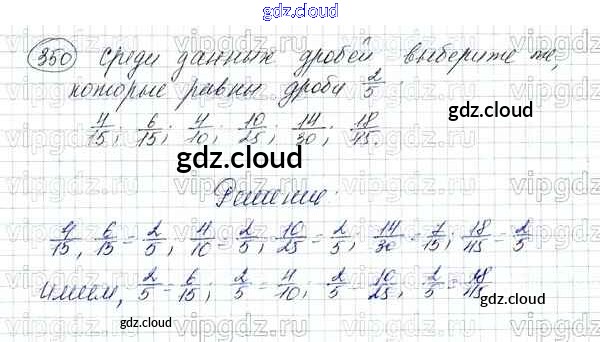 gdz.cloud
350 Среди данных дробей выберите те,
которые равны дроби 2/5.
4/15; 6/15; 4/10; 10/25; 14/30; 18/45.
gdz.cloud
gdz.cloud
Решение:
4/15, 6/15 = 2/5, 4/10 = 2/5; 10/25 = 2/5; 14/30 = 7/15; 18/45 = 2/5
Имеем, 2/5 = 6/15; 2/5 = 4/10; 2/5 = 10/25; 2/5 = 18/45
gdz.cloud
gdz.cloud